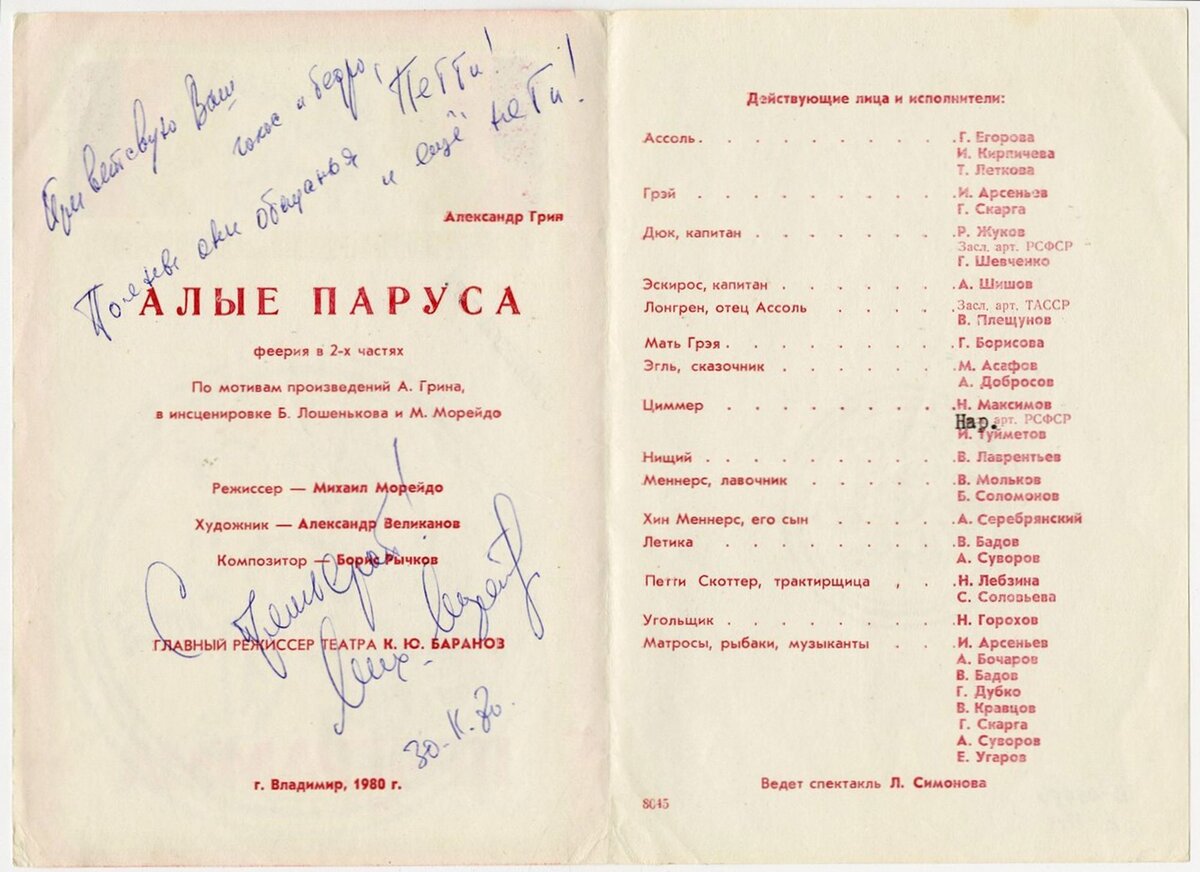 Приветствую Ваш
голос и бедро, Петти!
Полны они обещанья
и ещё нети!
Александр Грин
АЛЫЕ ПАРУСА
феерия в 2-х частях
По мотивам произведений А. Грина,
в инсценировке Б. Лошенькова и М. Морейдо
Режиссер — Михаил Морейдо
Художник — Александр Великанов
Композитор — Борис Рычков
С премьерой!
ГЛАВНЫЙ РЕЖИССЕР ТЕАТРА К. Ю. БАРАНОВ
Мих.
г. Владимир, 1980 г.
Действующие лица и исполнители:
Ассоль . . . . . . . . . . Г. Егорова
И. Кирпичева
Т. Леткова
Грэй . . . . . . . . . . И. Арсеньев
Г. Скарга
Дюк, капитан . . . . . . . . Р. Жуков
Засл. арт. РСФСР
Г. Шевченко
Эскирос, капитан . . . . . . . А. Шишов
Лонгрен, отец Ассоль . . . . Засл. арт. ТАССР
В. Плещунов
Мать Грэя . . . . . . . . . Г. Борисова
Эгль, сказочник . . . . . . . М. Асафов
А. Добросов
Циммер . . . . . . . . . Н. Максимов
Нар. арт. РСФСР
И. Туйметов
Нищий . . . . . . . . . . В. Лаврентьев
Меннерс, лавочник . . . . . В. Мольков
Б. Соломонов
Хин Меннерс, его сын . . . . А. Серебрянский
Летика . . . . . . . . . В. Бадов
А. Суворов
Петти Скоттер, трактирщица , . Н. Лебзина
С. Соловьева
Угольщик . . . . . . . . . Н. Горохов
Матросы, рыбаки, музыканты . . И. Арсеньев
А. Бочаров
В. Бадов
Г. Дубко
В. Кравцов
Г. Скарга
А. Суворов
Е. Угаров
Ведет спектакль Л. Симонова
8045